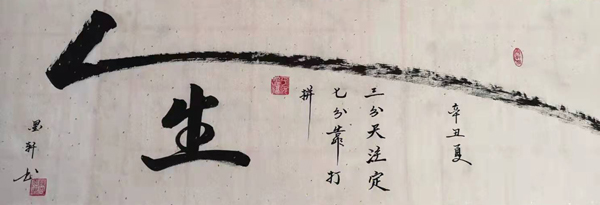 人生
辛丑夏
三分天注定
七分靠打
拼
墨轩书